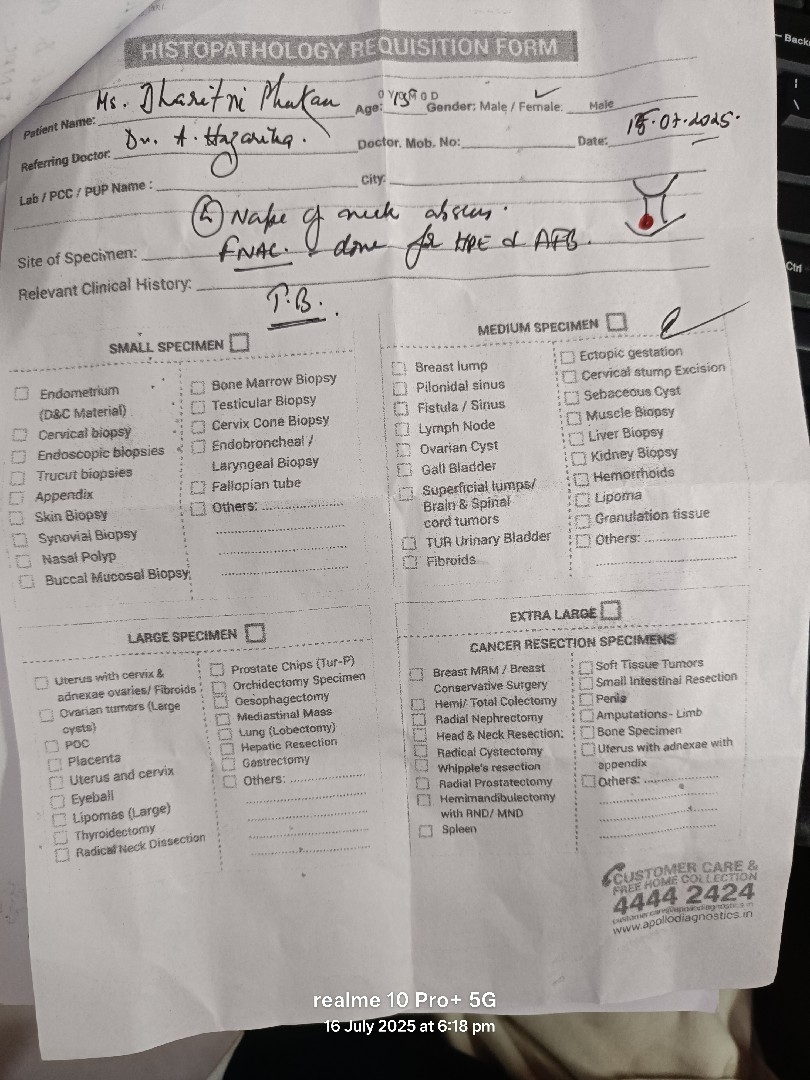 HISTOPATHOLOGY REQUISITION FORM
Patient Name: Ms. Dharitri Phukan Age: Gender: Male / Female: Male
Referring Doctor: Dr. A. Hazarika. Doctor. Mob. No: Date: 15.07.2025.
Lab / PCC / PUP Name : City:
Site of Specimen: Nape of neck abscess.
FNAC. done for HPE & AFB.
Relevant Clinical History:
T.B.
SMALL SPECIMEN
Endometrium
(D&C Material)
Cervical biopsy
Endoscopic biopsies
Trucut biopsies
Appendix
Skin Biopsy
Synovial Biopsy
Nasal Polyp
Buccal Mucosal Biopsy
Bone Marrow Biopsy
Testicular Biopsy
Cervix Cone Biopsy
Endobroncheal /
Laryngeal Biopsy
Fallopian tube
Others:
MEDIUM SPECIMEN
Breast lump
Pilonidal sinus
Fistula / Sinus
Lymph Node
Ovarian Cyst
Gall Bladder
Superficial lumps/
Brain & Spinal
cord tumors
TUR Urinary Bladder
Fibroids
Ectopic gestation
Cervical stump Excision
Sebaceous Cyst
Muscle Biopsy
Liver Biopsy
Kidney Biopsy
Hemorrhoids
Lipoma
Granulation tissue
Others:
LARGE SPECIMEN
Uterus with cervix &
adnexae ovaries/ Fibroids
Ovarian tumors (Large
cysts)
POC
Placenta
Uterus and cervix
Eyeball
Lipomas (Large)
Thyroidectomy
Radical Neck Dissection
Prostate Chips (Tur-P)
Orchidectomy Specimen
Oesophagectomy
Mediastinal Mass
Lung (Lobectomy)
Hepatic Resection
Gastrectomy
Others:
EXTRA LARGE
CANCER RESECTION SPECIMENS
Breast MRM / Breast
Conservative Surgery
Hemi/ Total Colectomy
Radial Nephrectomy
Head & Neck Resection:
Radical Cystectomy
Whipple's resection
Radial Prostatectomy
Hemimandibulectomy
with RND/ MND
Spleen
Soft Tissue Tumors
Small Intestinal Resection
Penis
Amputations- Limb
Bone Specimen
Uterus with adnexae with
appendix
Others:
CUSTOMER CARE &
FREE HOME COLLECTION
4444 2424
www.apollodiagnostics.in
realme 10 Pro+ 5G
16 July 2025 at 6:18 pm
Back
Ctrl